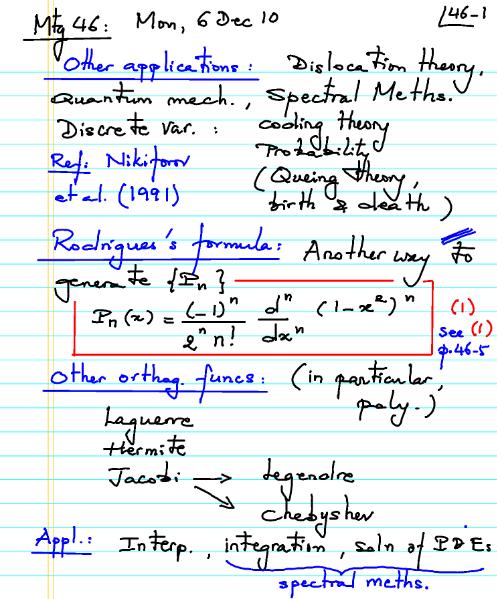 Mtg 46: Mon, 6 Dec 10
46-1
Other applications: Dislocation theory,
Quantum mech., Spectral Meths.
Discrete var.: coding theory
Probability
Ref: Nikiforov
et al. (1991)
(Queing theory,
birth & death)
Rodrigues's formula: Another way to
generate {P_n}
P_n(x) = (-1)^n / (2^n n!) d^n/dx^n (1-x^2)^n
(1)
see (1)
p.46-5
Other orthog. funcs: (in particular,
poly.)
Laguerre
Hermite
Jacobi → Legendre
↘ Chebyshev
Appl.: Interp., integration, soln of PDEs
spectral meths.